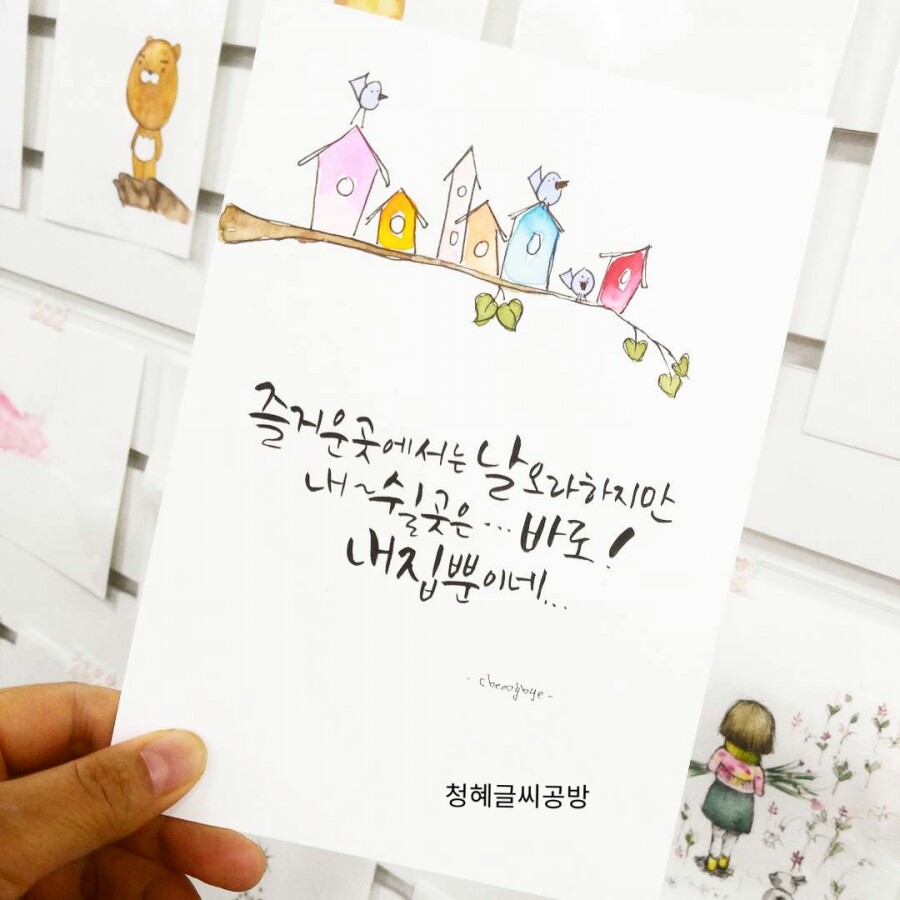 즐거운곳에서는 날오라하지만
내~쉴곳은... 바로!
내집뿐이네...
- cheonghye -
청혜글씨공방